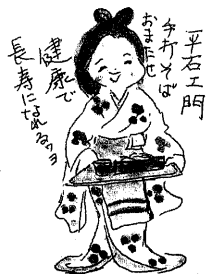 平右エ門
手打そば
おまたせ
健康で
長寿になれるヨ